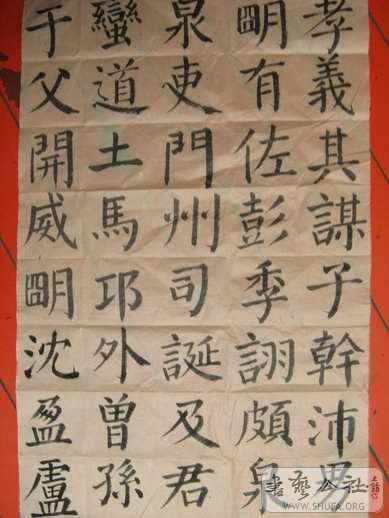 孝義其謀子幹沛男
朙有佐彭季詡頗泉
泉吏門州司誕及君
蠻道土馬邛外曾孫
于父開威朙沈盈盧
書藝公社
WWW.SHUFA.ORG